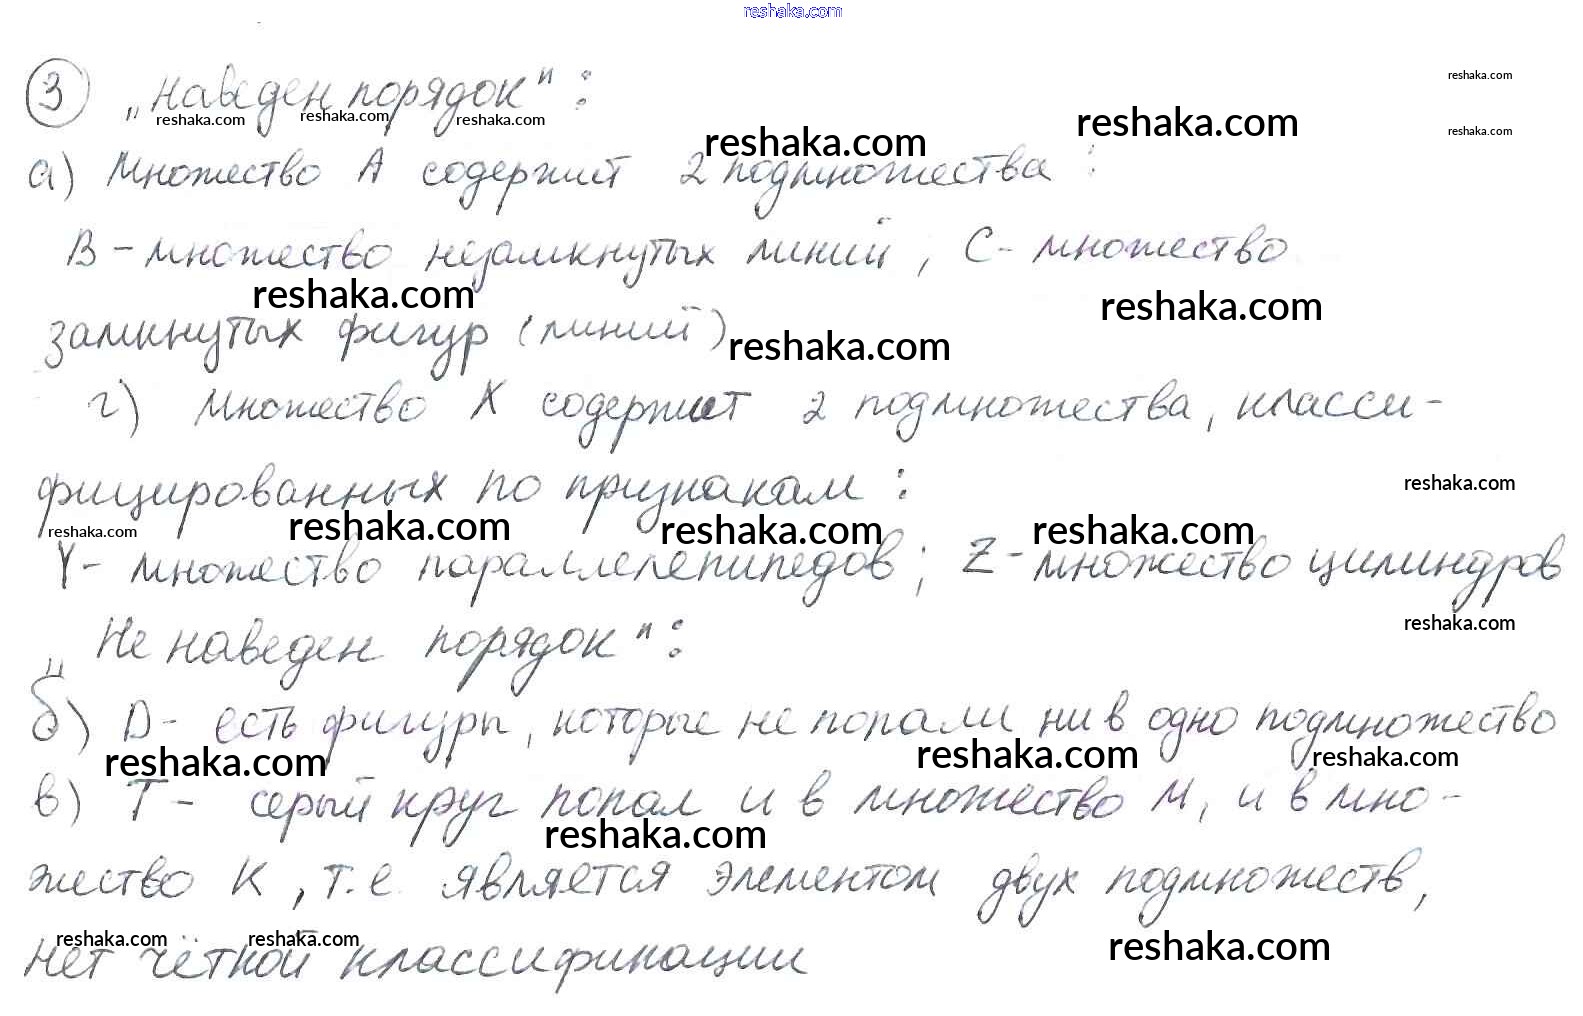 reshaka.com
3 „Наведен порядок":
reshaka.com reshaka.com reshaka.com reshaka.com reshaka.com reshaka.com reshaka.com
а) Множество А содержит 2 подмножества:
В – множество незамкнутых линий, С – множество
reshaka.com reshaka.com
замкнутых фигур (линий)
reshaka.com
г) Множество Х содержит 2 подмножества, класси-
фицированных по признакам:
reshaka.com
reshaka.com reshaka.com reshaka.com reshaka.com
Y – множество параллелепипедов; Z – множество цилиндров
„Не наведен порядок":
reshaka.com
б) D – есть фигуры, которые не попали ни в одно подмножество
reshaka.com reshaka.com reshaka.com
в) Т – серый круг попал и в множество М, и в мно-
reshaka.com
жество К, т.е. является элементом двух подмножеств,
reshaka.com reshaka.com reshaka.com
нет чёткой классификации